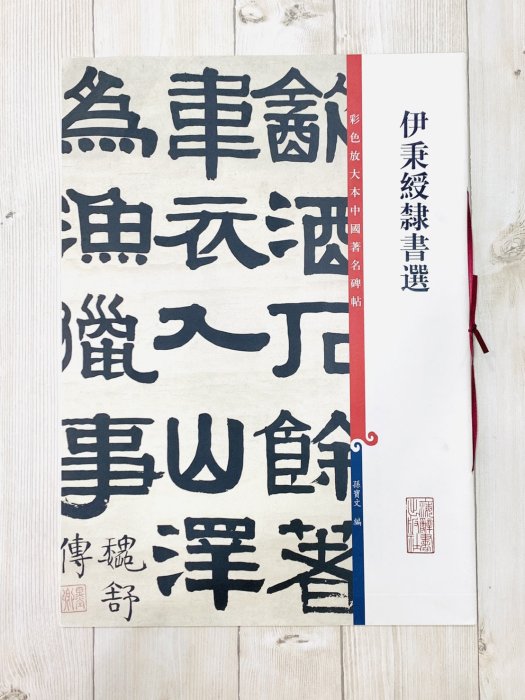 伊秉綬隸書選
彩色放大本中國著名碑帖
孫寶文 編
㱃酒石餘著
韋衣入山澤
為漁獵事
魏舒
傳